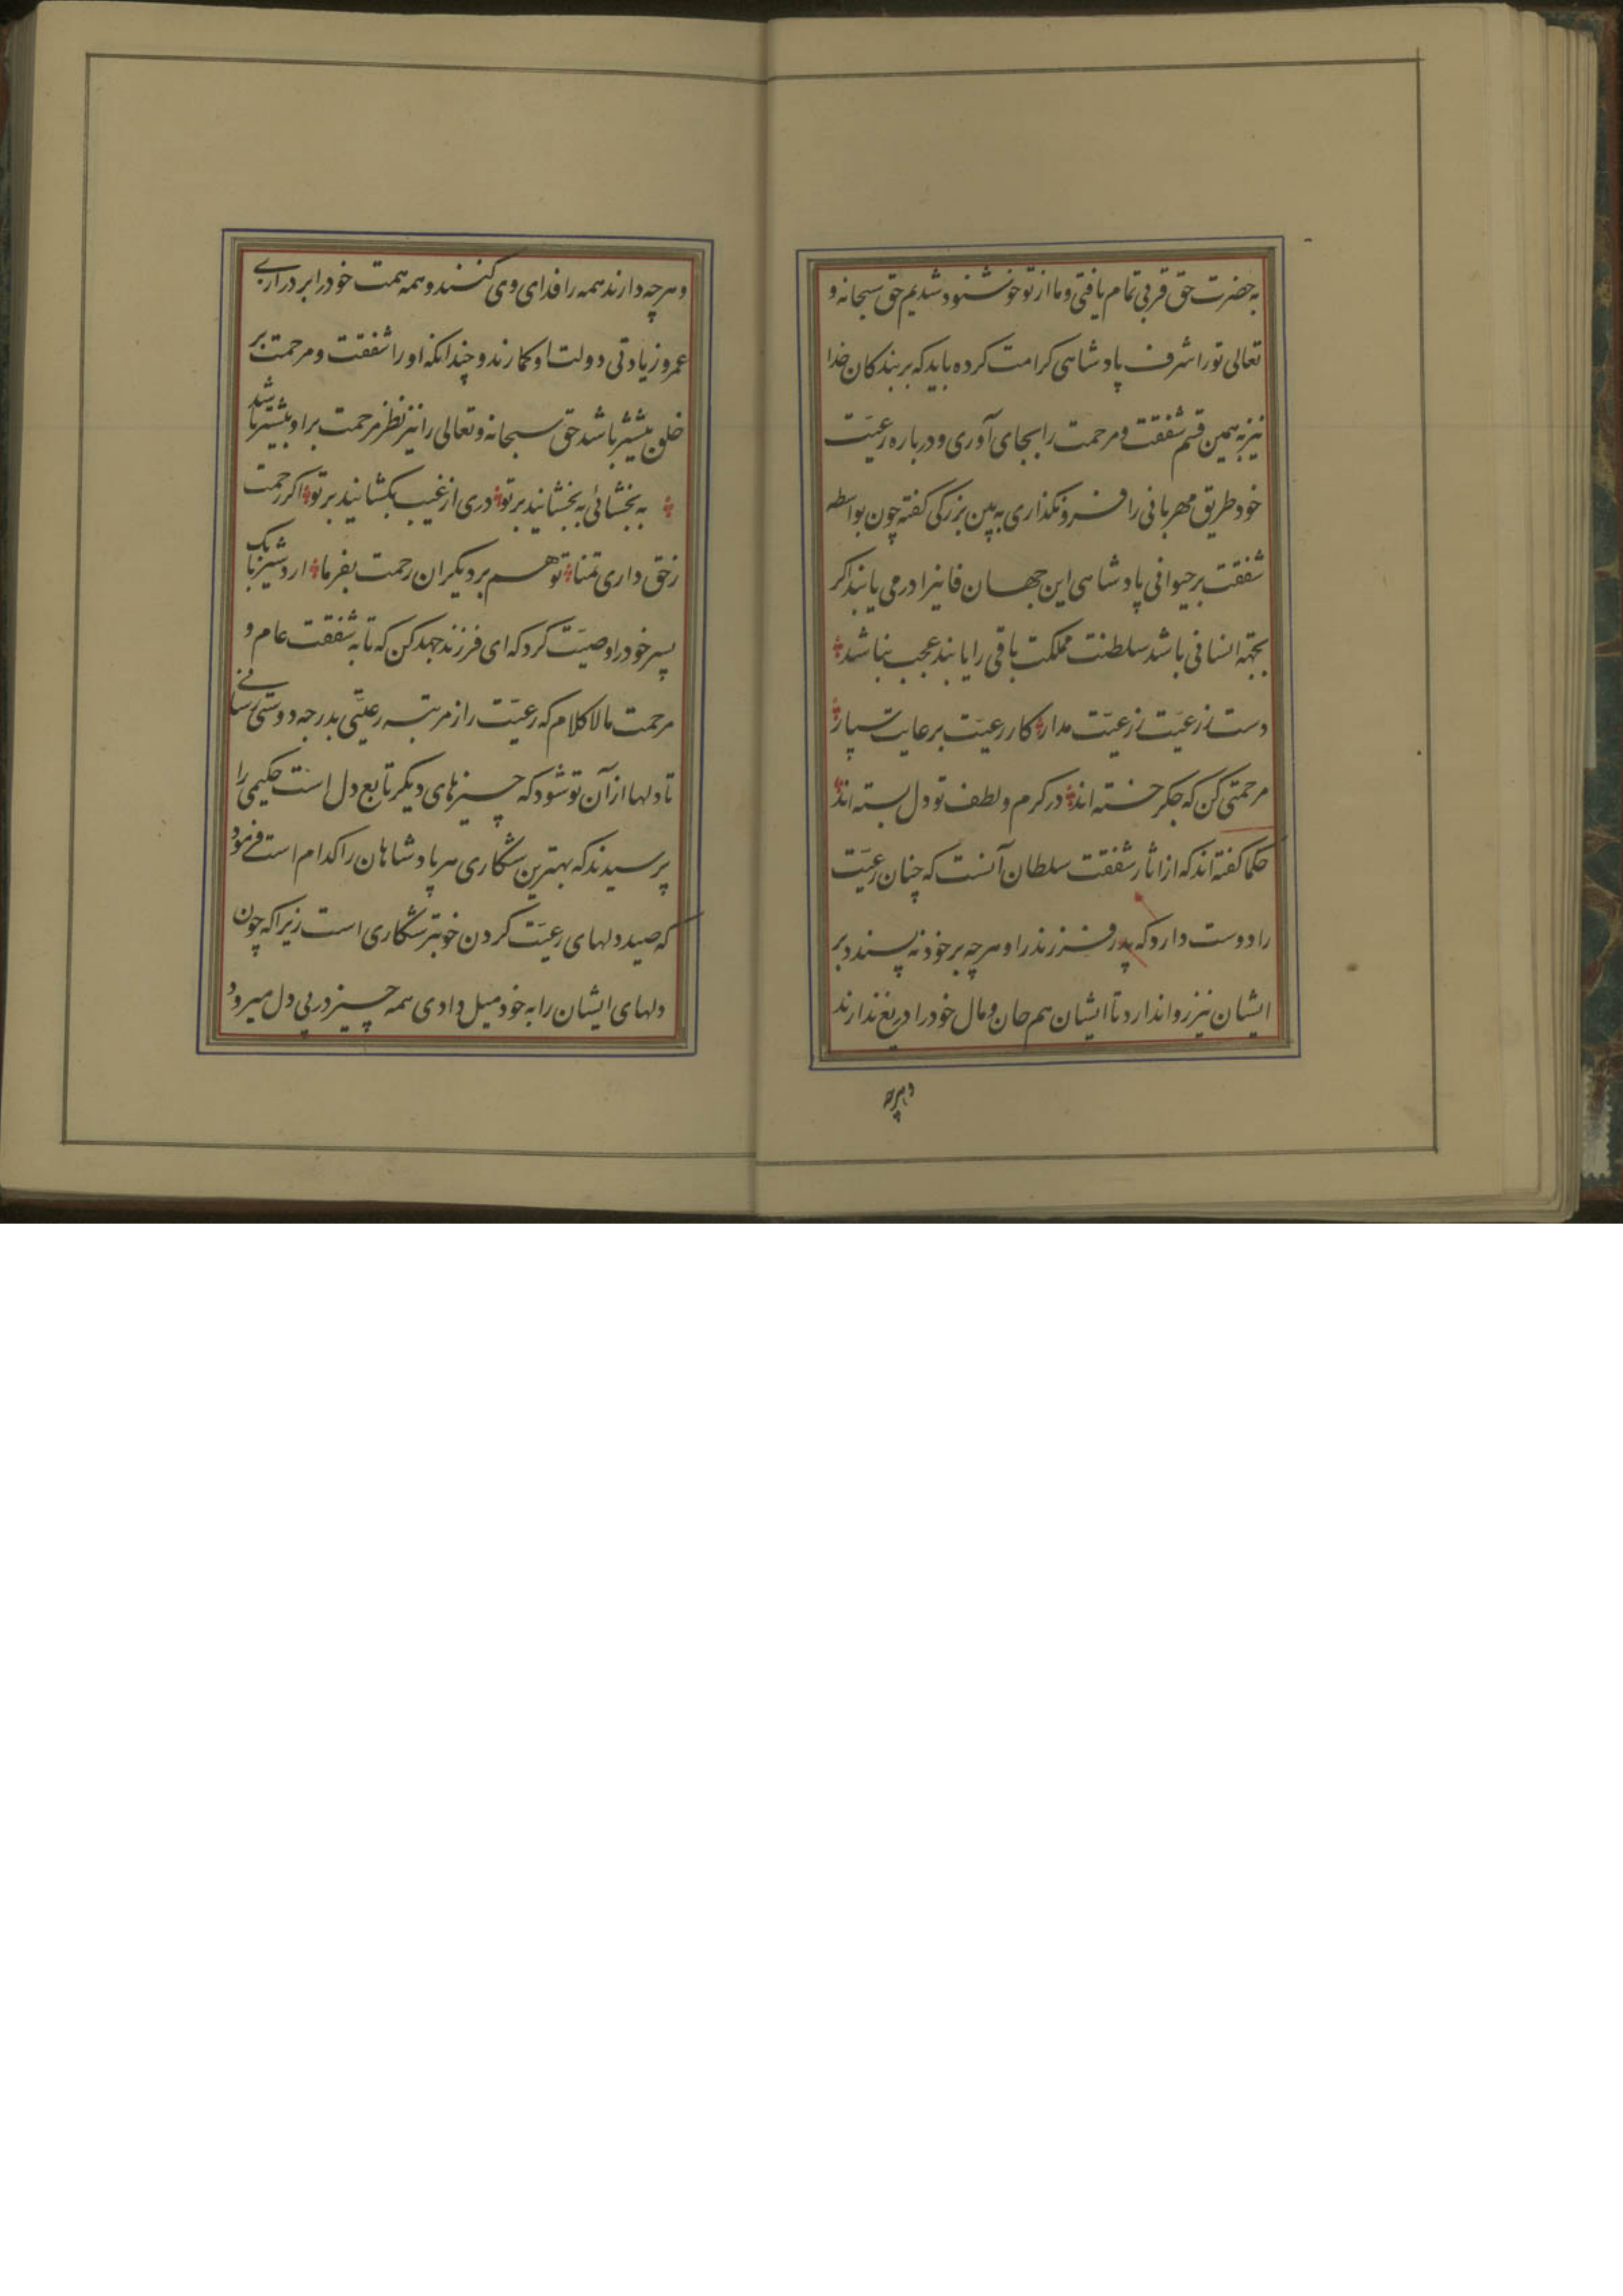 به حضرت حق قربی تمام یافتی و ما از تو خوشنود شدیم حق سبحانه و
تعالی تو را شرف پادشاهی کرامت کرده باید که بر بندکان خدا
نیز به همین قسم شفقت و مرحمت را بجای آوری و درباره رعیّت
خود طریق مهربانی را فرو نکذاری به بین بزرکی کفته چون بواسطه
شفقت بر حیوانی پادشاهی این جهان فانیرا در می یابند اکر
بجهة انسانی باشد سلطنت مملکت باقی را یابند عجب نباشد
دست ز رعیّت ز رعیّت مدار کار رعیّت برعایت سپار
مرحمتی کن که جکر خسته اند در کرم و لطف تو دل بسته اند
حکما کفته اند که از اثار شفقت سلطان آنست که چنان رعیّت
را دوست دارد که پدر فرزند را و هر چه بر خود نه پسندد بر
ایشان نیز روا ندارد تا ایشان هم جان و مال خود را دریغ ندارند
و هرچه
و هرچه دارند همه را فدای وی کنند و همه همت خود را بر درازی
عمر و زیادتی دولت او کمارند و چندانکه او را شفقت و مرحمت بر
خلق بیشتر باشد حق سبحانه و تعالی را نیز نظر مرحمت بر او بیشتر باشد
به بخشائی به بخشایند بر تو دری از غیب بکشایند بر تو اکر رحمت
زحق داری تمنا تو هم بر دیکران رحمت بفرما اردشیر بابک
پسر خود را وصیّت کرد که ای فرزند جهد کن که تا به شفقت عام و
مرحمت مالاکلام که رعیّت را از مرتبه رعیّتی بدرجه دوستی رسانی
تا دلها از آن تو شود که چیزهای دیکر تابع دل است حکیمی را
پرسیدند که بهترین شکاری مر پادشاهان را کدام است فرمود
که صید دلهای رعیّت کردن خوبتر شکاری است زیرا که چون
دلهای ایشان را به خود میل دادی همه چیز در پی دل میرود